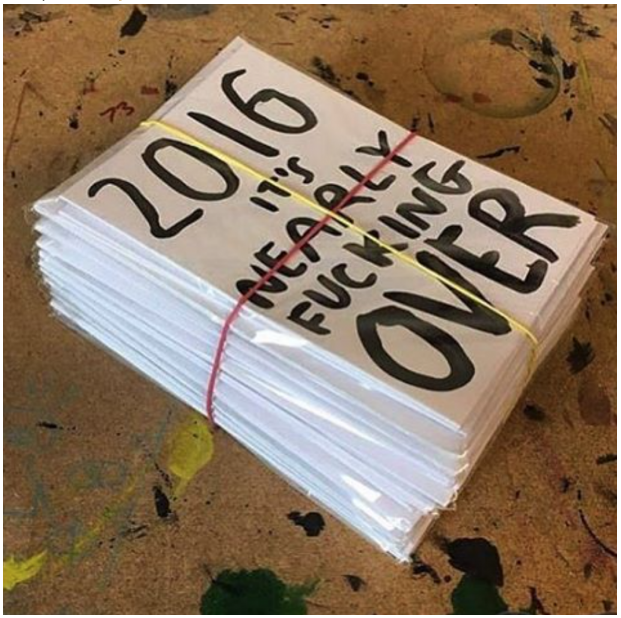 2016
IT'S
NEARLY
FUCKING
OVER